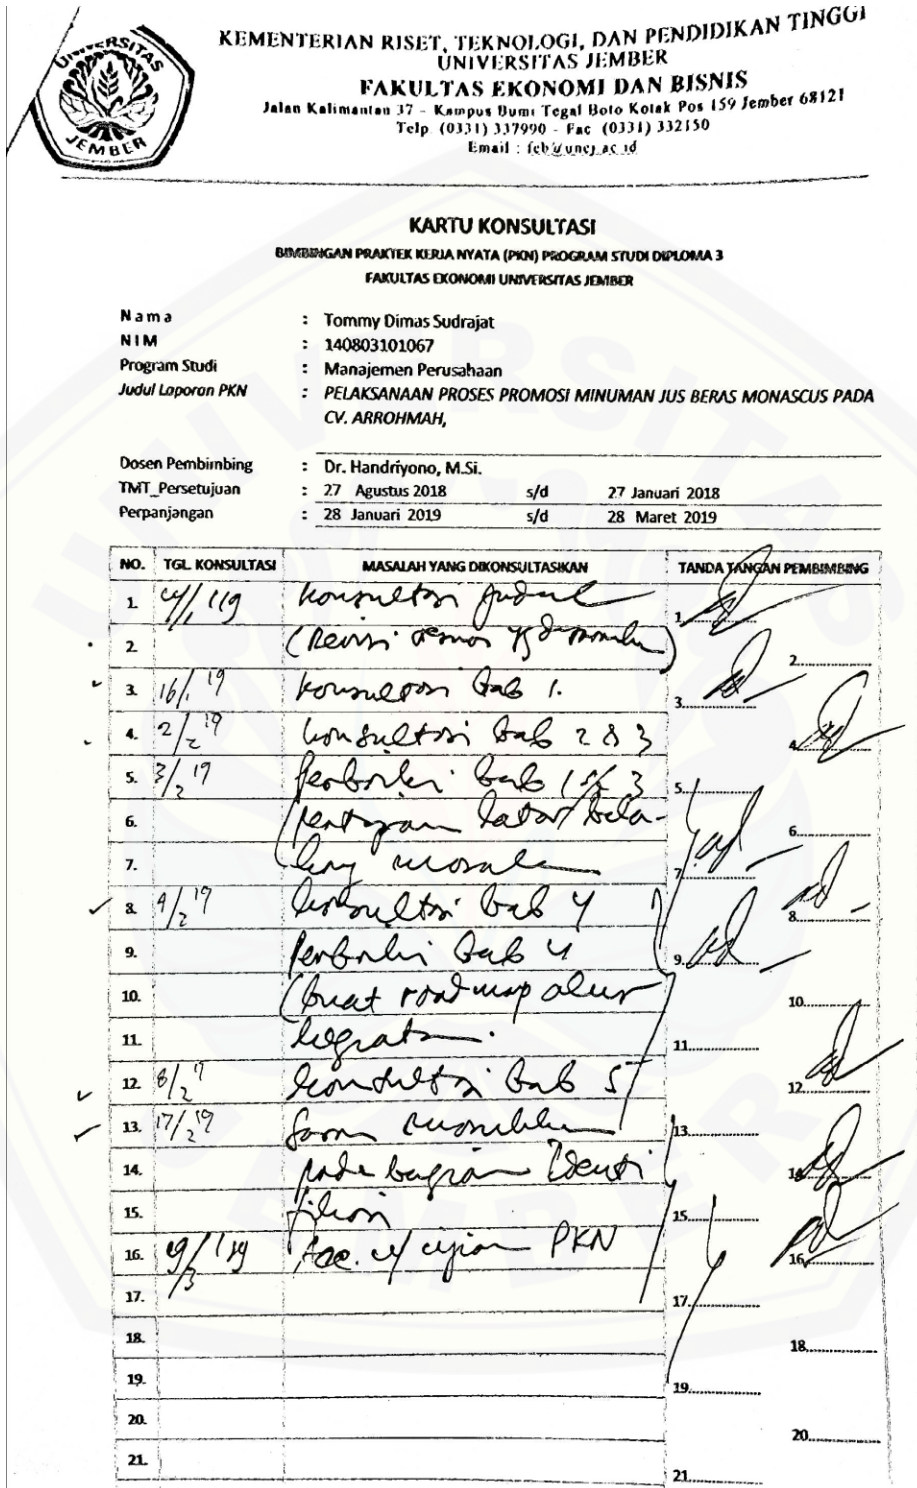 UNIVERSITAS JEMBER
KEMENTERIAN RISET, TEKNOLOGI, DAN PENDIDIKAN TINGGI
UNIVERSITAS JEMBER
FAKULTAS EKONOMI DAN BISNIS
Jalan Kalimantan 37 - Kampus Bumi Tegal Boto Kotak Pos 159 Jember 68121
Telp. (0331) 337990 - Fac. (0331) 332150
Email : feb@unej.ac.id
KARTU KONSULTASI
BIMBINGAN PRAKTEK KERJA NYATA (PKN) PROGRAM STUDI DIPLOMA 3
FAKULTAS EKONOMI UNIVERSITAS JEMBER
N a m a : Tommy Dimas Sudrajat
N I M : 140803101067
Program Studi : Manajemen Perusahaan
Judul Laporan PKN : PELAKSANAAN PROSES PROMOSI MINUMAN JUS BERAS MONASCUS PADA
CV. ARROHMAH,
Dosen Pembimbing : Dr. Handriyono, M.Si.
TMT_Persetujuan : 27 Agustus 2018 s/d 27 Januari 2018
Perpanjangan : 28 Januari 2019 s/d 28 Maret 2019
NO. TGL. KONSULTASI MASALAH YANG DIKONSULTASIKAN TANDA TANGAN PEMBIMBING
1. konsultasi judul 1.
2. (Revisi 2.
3. 16/1 19 konsultasi bab 1. 3.
4. 2/2 19 konsultasi bab 2 & 3 4.
5. 3/2 19 bab 1 s/d 3 5.
6. latar bela- 6.
7. kang 7.
8. 4/2 19 konsultasi bab 4 8.
9. bab 4 9.
10. (buat roadmap alur 10.
11. kegiatan. 11.
12. 8/2 konsultasi bab 5 12.
13. 17/2 19 Saran 13.
14. pada bagian Identi 14.
15. fikasi 15.
16. Acc. u/ ujian PKN 16.
17. 17.
18. 18.
19. 19.
20. 20.
21. 21.